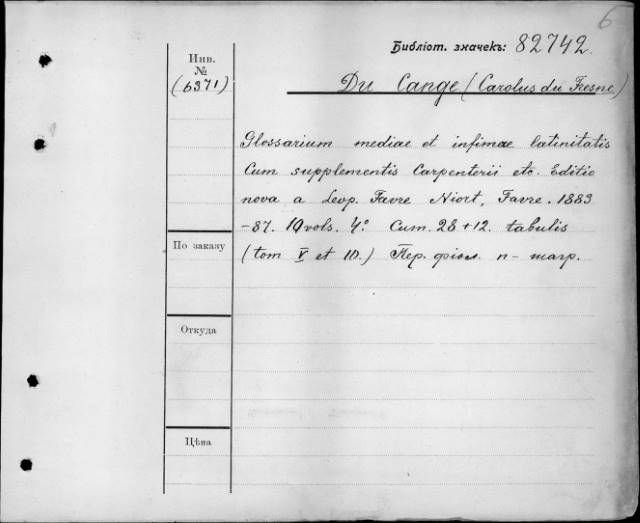 6
Библіот. значекъ: 82742.
Инв.
№
(6371)
Du Cange (Carolus du Fresne)
Glossarium mediae et infimae latinitatis
Cum supplementis Carpenterii etc. Editio
nova a Leop. Favre Niort, Favre. 1883
-87. 10 vols. 4º Cum. 28 + 12. tabulis
(tom V et 10.) Пер. n-
По заказу
Откуда
Цѣна